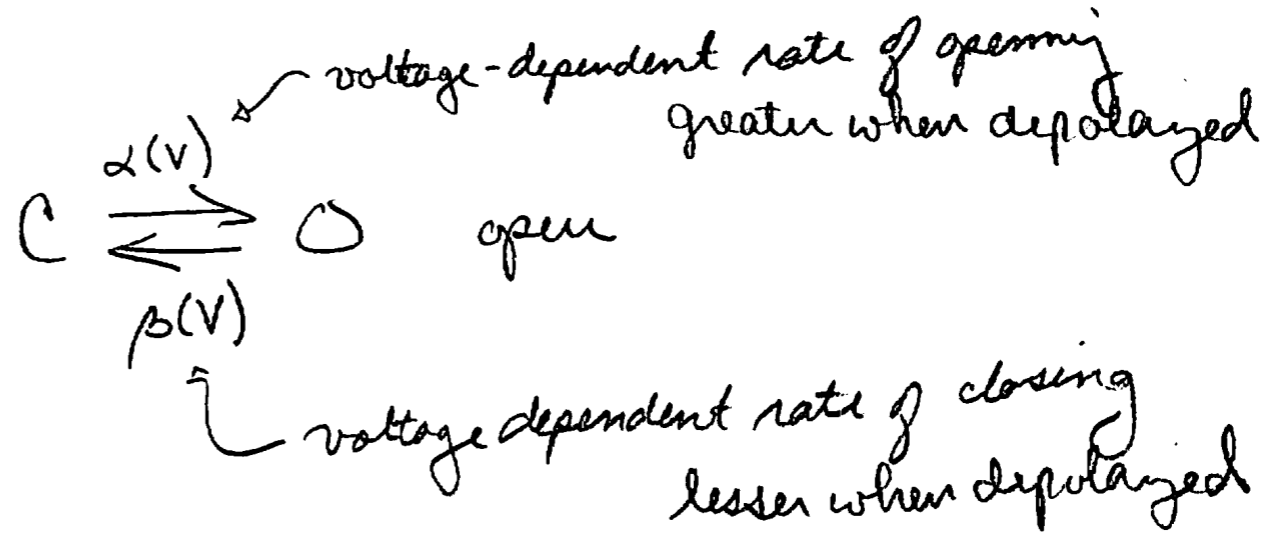 voltage-dependent rate of opening
greater when depolarized
α(V)
C ⇌ O open
β(V)
voltage dependent rate of closing
lesser when depolarized